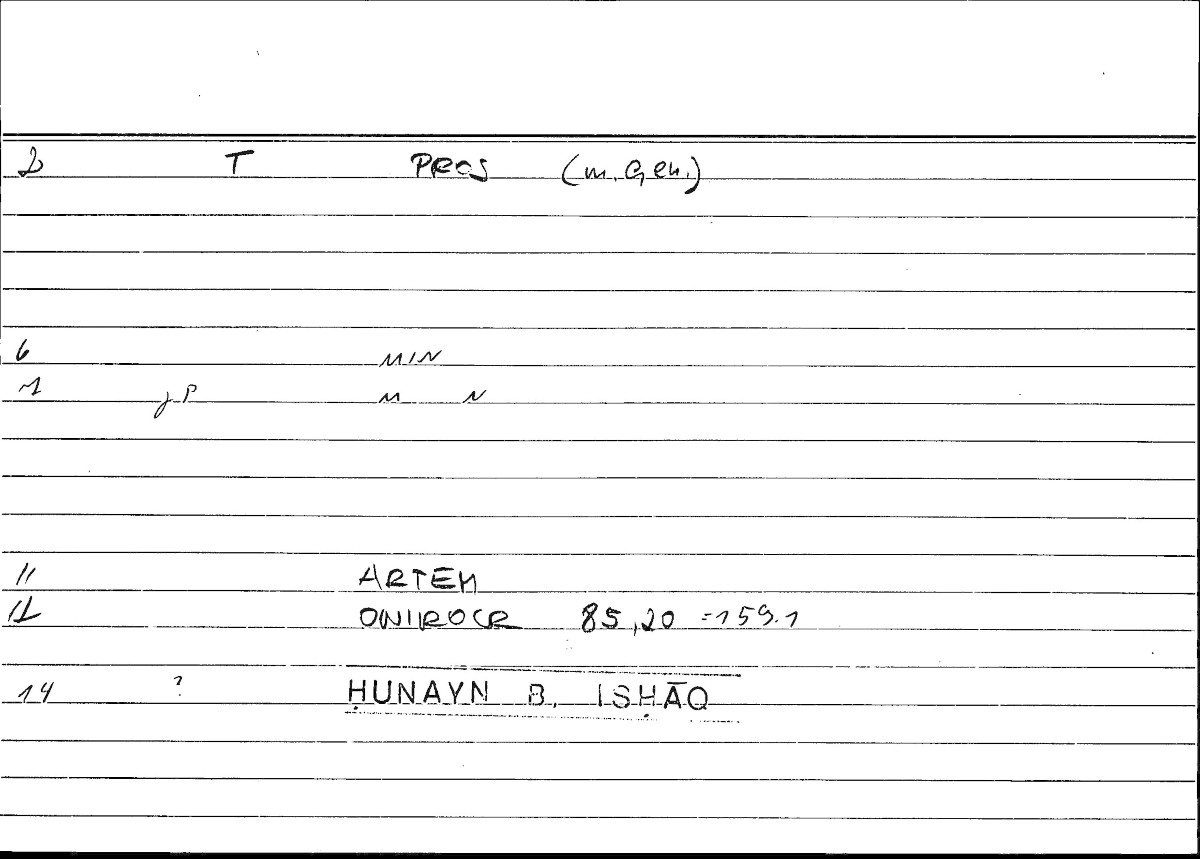 2 T PROS (m. Gen.)
6 MIN
7 jP M N
11 ARTEM
12 ONIROCR 85,20 =159.1
14 ? ḤUNAYN B. ISḤĀQ